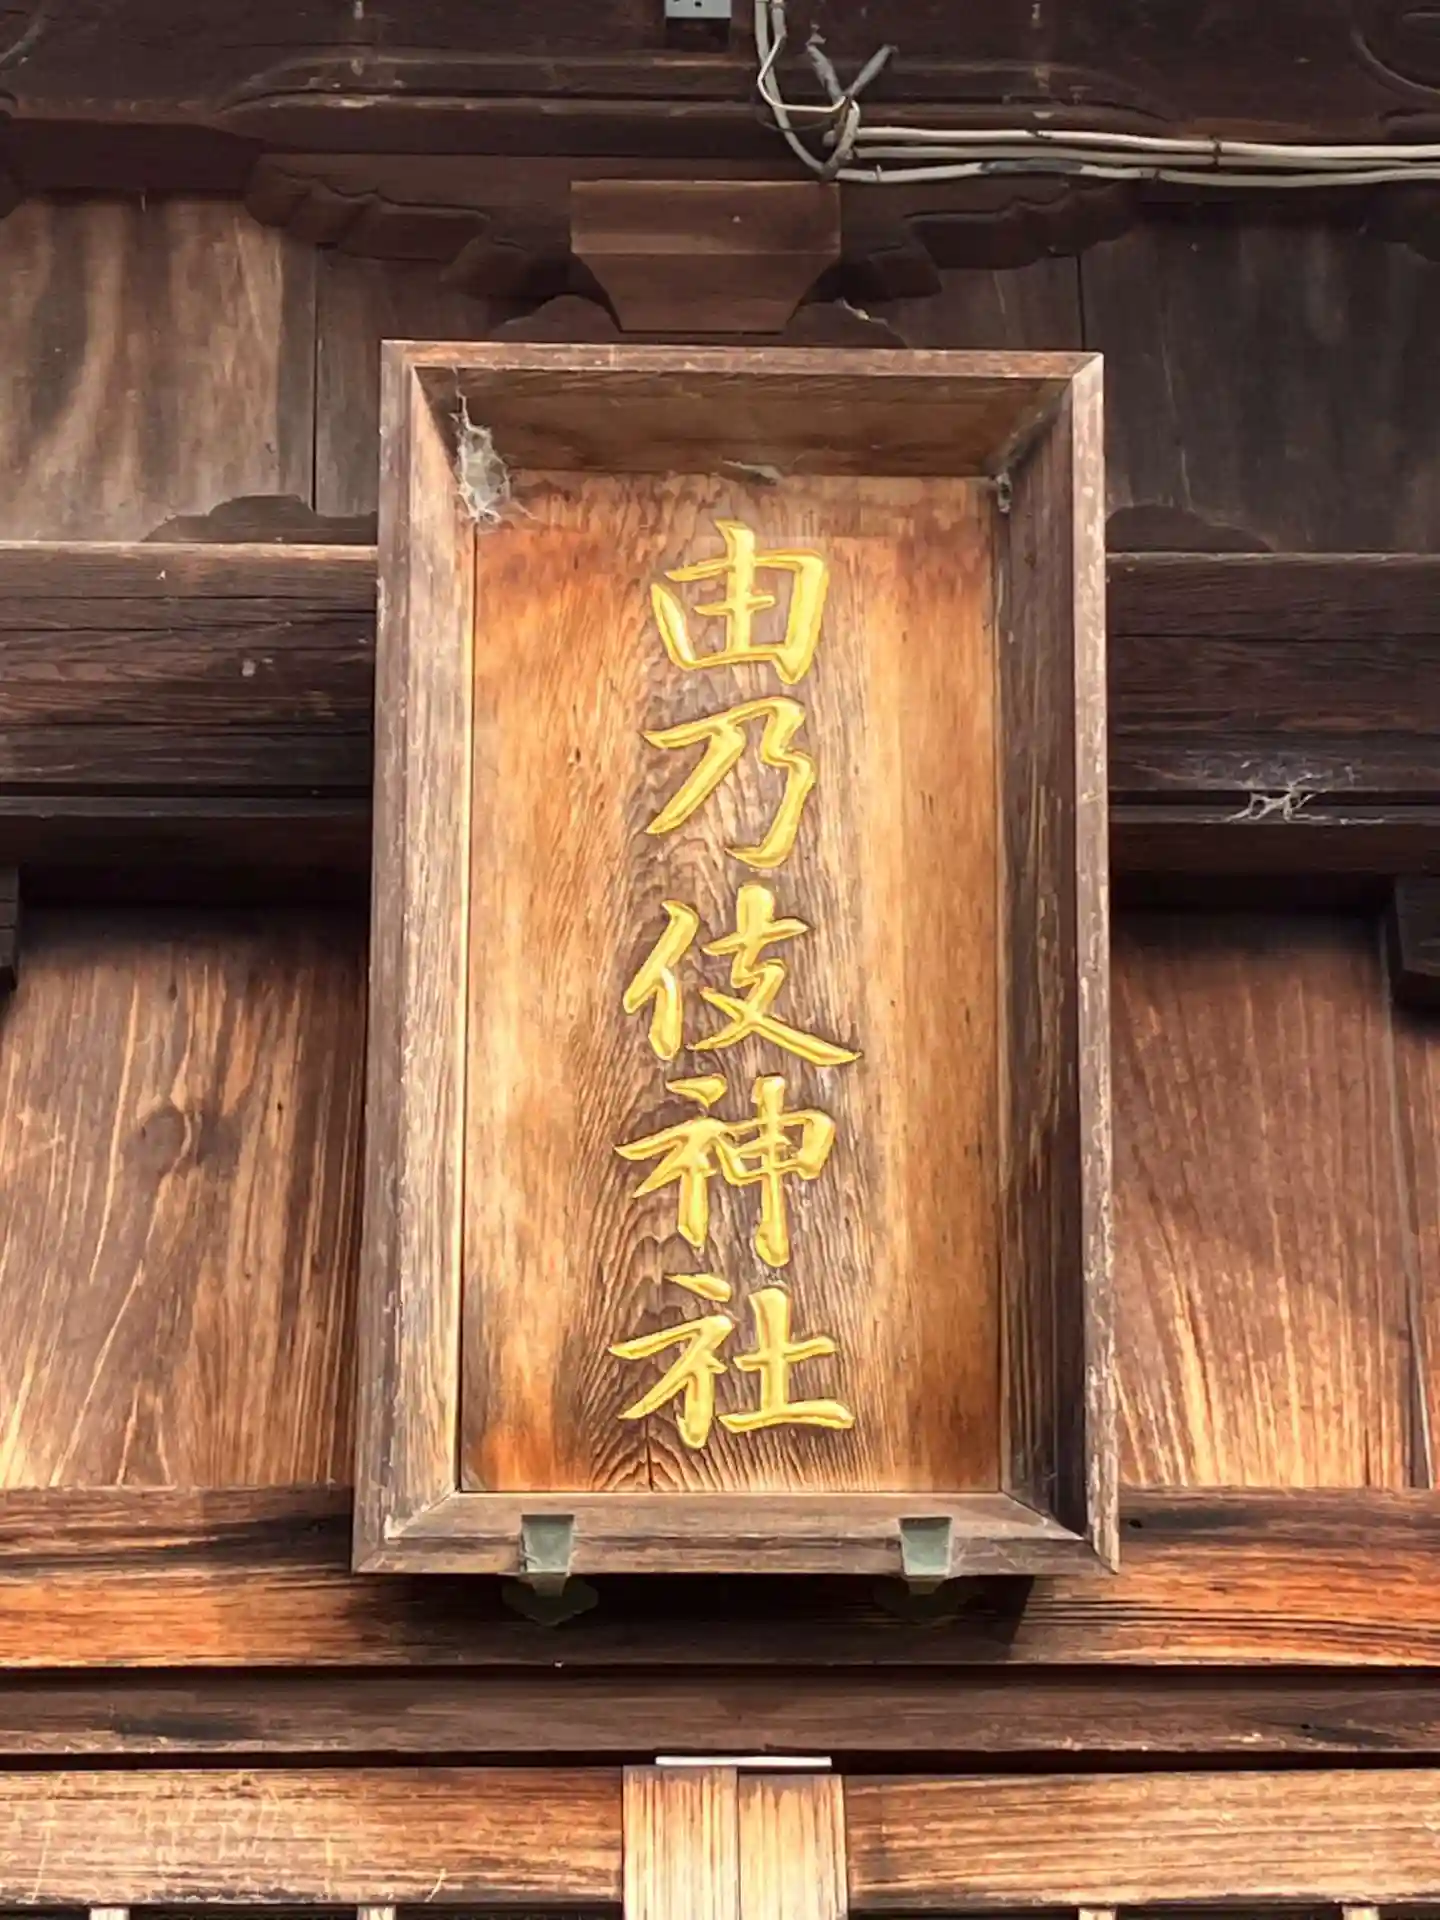 由乃伎神社